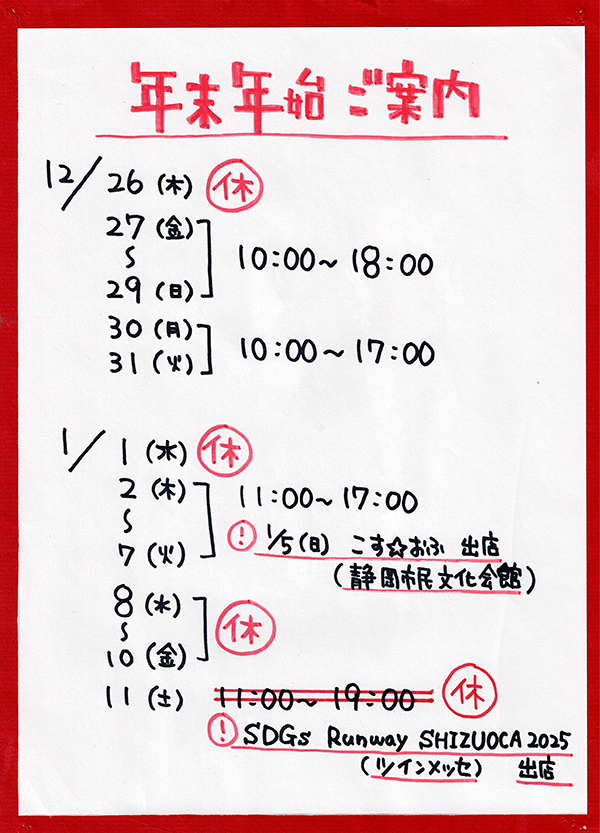 年末年始ご案内
12/26(木) 休
27(金)
〜
29(日)
10:00〜18:00
30(月)
31(火)
10:00〜17:00
1/1(水) 休
2(木)
〜
7(火)
11:00〜17:00
! 1/5(日) こす☆おふ 出店
(静岡市民文化会館)
8(水)
〜
10(金)
休
11(土) 11:00〜19:00 休
! SDGs Runway SHIZUOCA 2025
(ツインメッセ) 出店